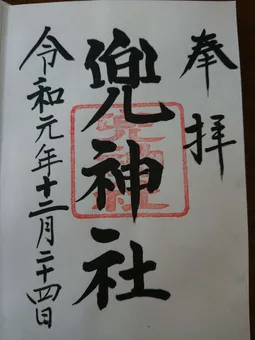 奉拝
兜神社
令和元年十二月二十四日